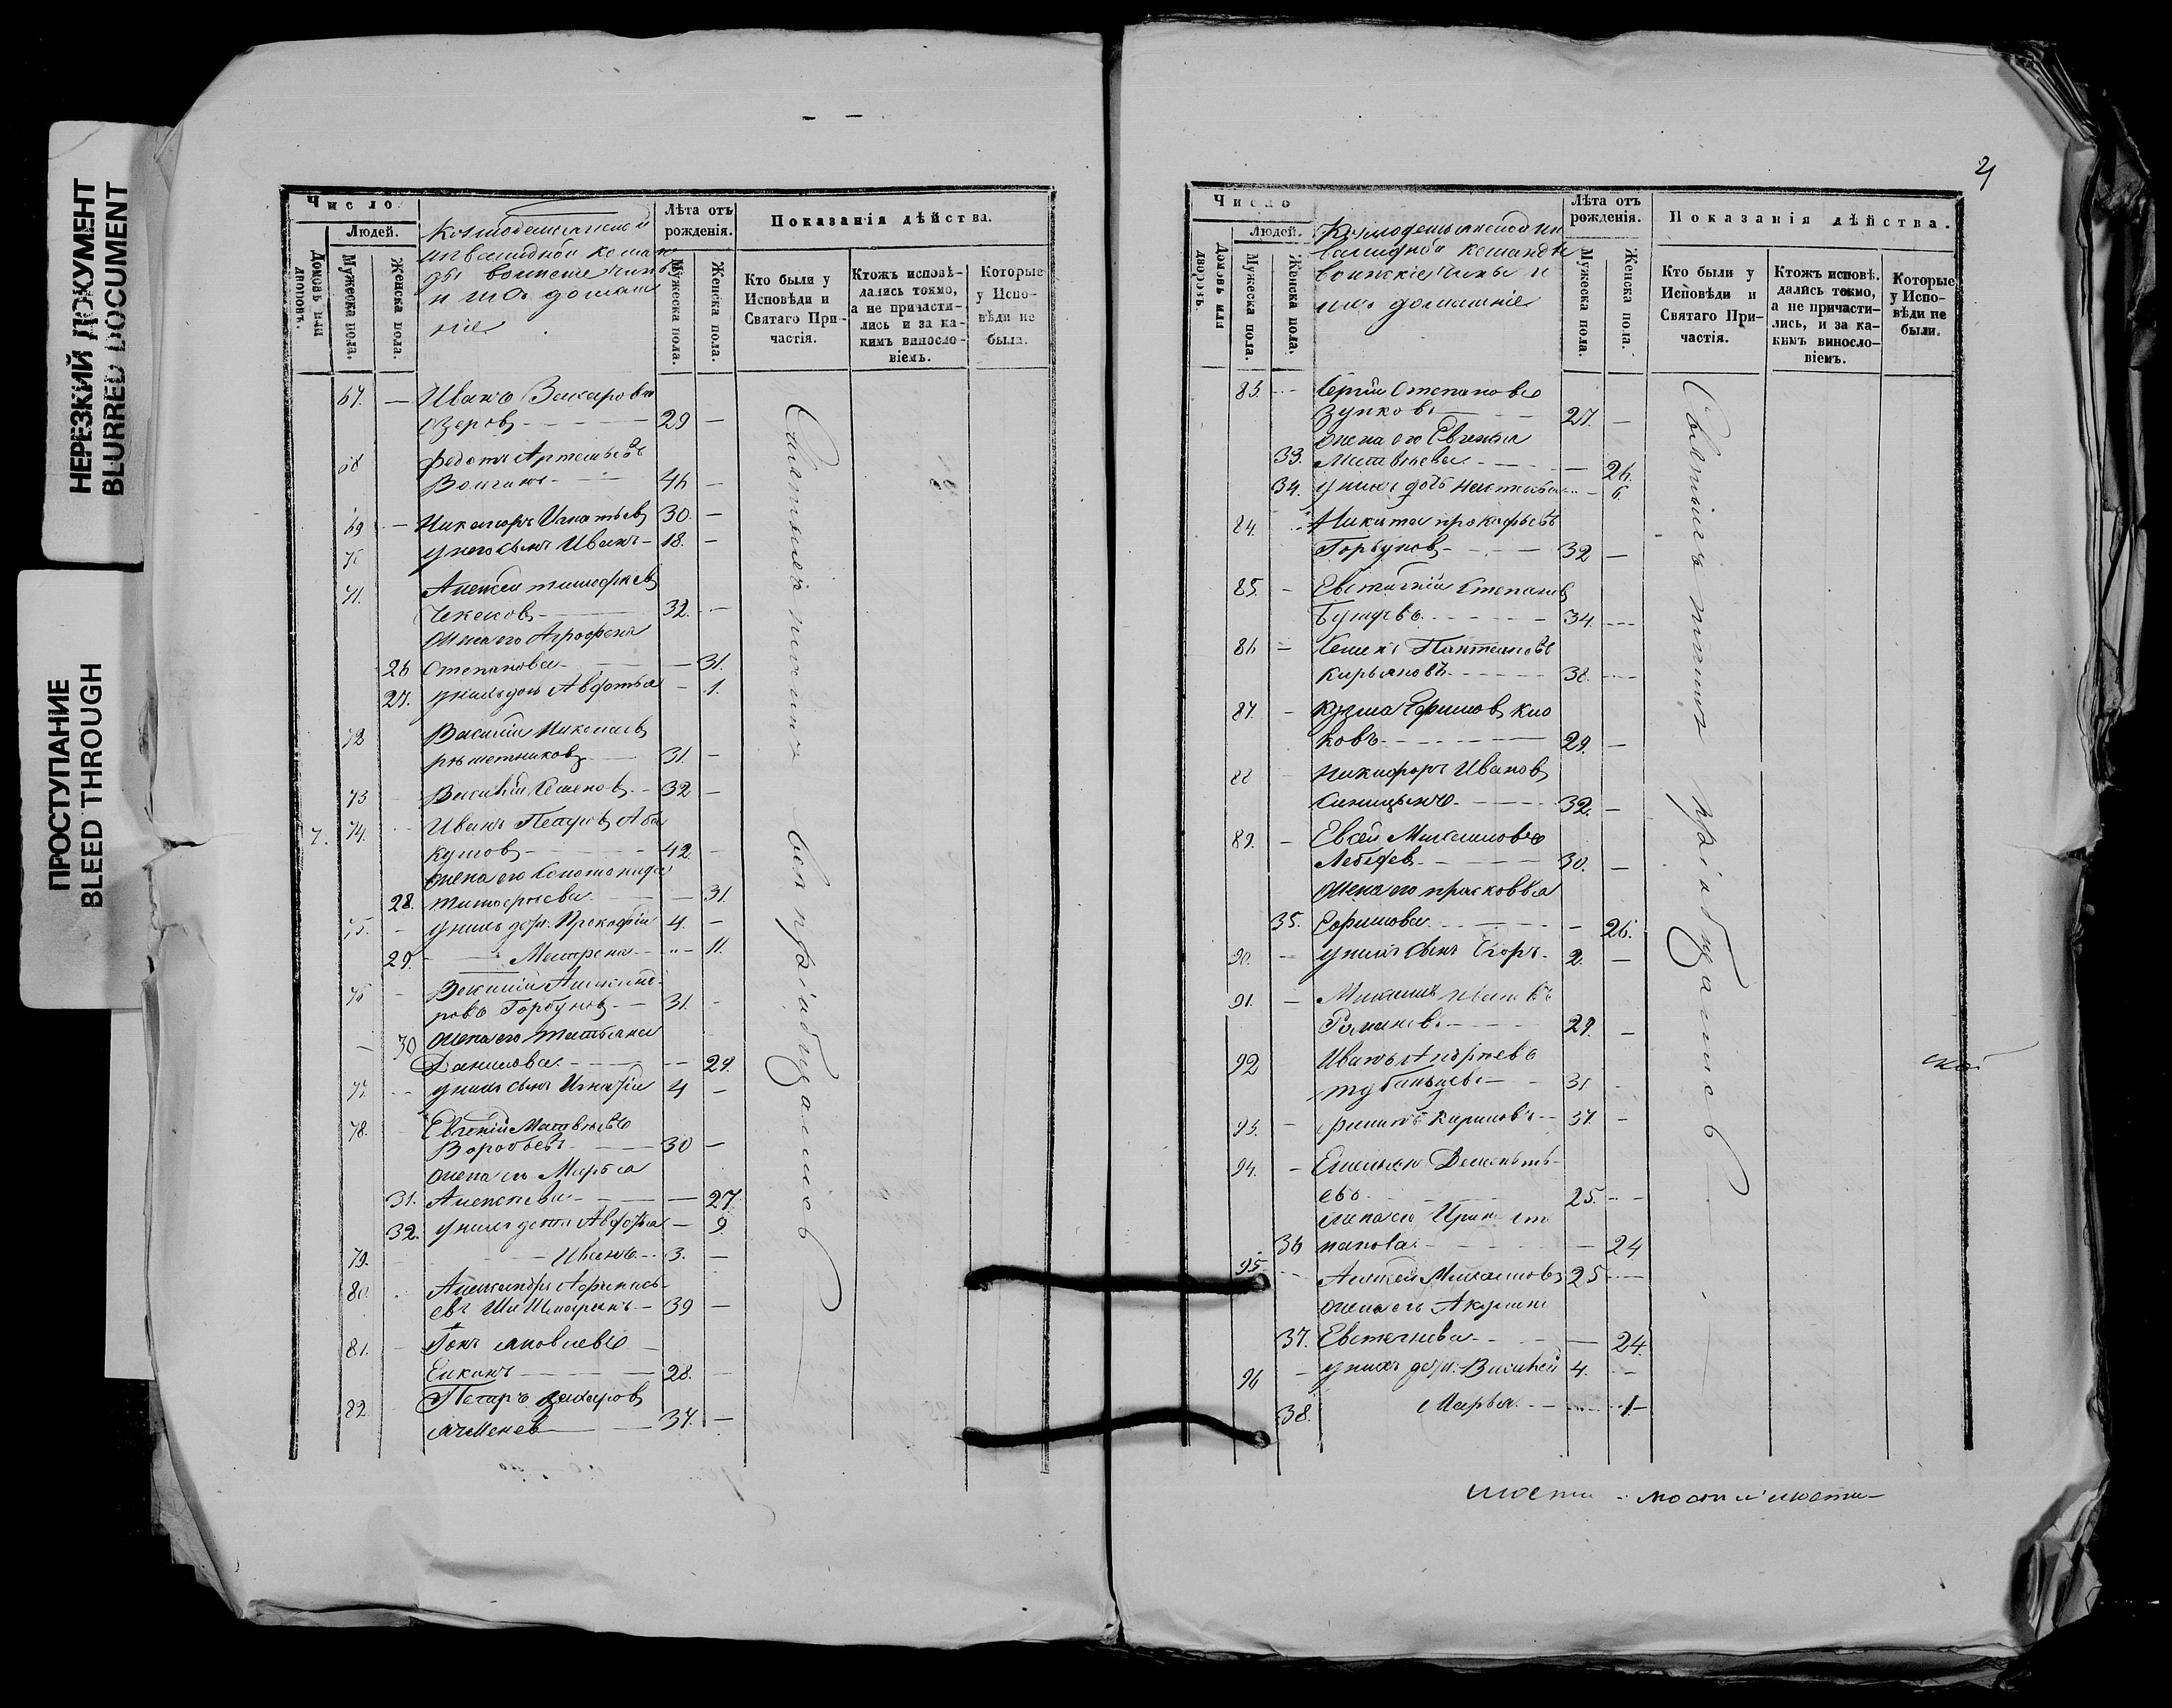 НЕРЕЗКИЙ ДОКУМЕНТ
BLURRED DOCUMENT
ПРОСТУПАНИЕ
BLEED THROUGH
Число
Людей.
Домовъ или дворовъ.
Мужеска пола.
Женска пола.
Козмодемьянской
инвалидной коман
ды воинские чины
и ихъ домаш
ніе
Лѣта отъ рожденія.
Мужеска пола.
Женска пола.
Показанія дѣйства.
Кто были у Исповѣди и Святаго Причастія.
Ктожъ исповѣдались токмо, а не причастились и за какимъ винословіемъ.
Которые у Исповѣди не были.
67. — Иванъ Захаровъ
Озеровъ 29 —
68 Федотъ Артемьевъ
46 —
69 — Никаноръ Игнатьевъ 30. —
70 у него сынъ Иванъ 18. —
71. Алексей Тимофеевъ
32. —
Жена его Аграфена
26 Степанова — 31.
27. у нихъ дочь Авдотья — 1.
72 Василий Николаевъ
Решетниковъ 31. —
73 Василий Семеновъ 32 —
7. 74. Иванъ Петровъ Аба
кумовъ 42 —
Жена его
28. Тимофеева — 31.
75. у нихъ дети Прокофій 4. —
29. Матрена — 11.
76 Василий Александ
ровъ Горбуновъ 31. —
30 Жена его Татьяна
Данилова — 29.
77. у нихъ сынъ Игнатій 4 —
78. Евгений Матвеевъ
Воробьевъ 30 —
Жена его Марья
31. Алексеева — 27.
32. у нихъ дети Авдотья — 9.
79. Иванъ 3. —
80. Александръ Афанась
евъ 39 —
81. Яковлевъ
28. —
82 Петръ Захаровъ
Ячменевъ 37. —
Святыхъ таинъ всѣ пріобщались
4
Число
Людей.
Домовъ или дворовъ.
Мужеска пола.
Женска пола.
Козмодемьянской ин
валидной команды
воинскіе чины и
ихъ домашніе
Лѣта отъ рожденія.
Мужеска пола.
Женска пола.
Показанія дѣйства.
Кто были у Исповѣди и Святаго Причастія.
Ктожъ исповѣдались токмо, а не причастились, и за какимъ винословіемъ.
Которые у Исповѣди не были.
83. Сергій Степановъ
Зупковъ 27. —
жена его Евгенья
33. Матвеева — 26.
34. у нихъ дочь Настасья — 6.
84. Никита Прокофьевъ
Горбуновъ 32 —
85. — Евстигней Степановъ
34.
86 — Семенъ
Кирьяновъ 38.
87. — Кузма Ефимовъ Кло
ковъ 29. —
88 Никифоръ Ивановъ
Синицынъ 32. —
89. — Евсей Михайловъ
Лебедевъ 30. —
Жена его Прасковья
35. Ефимова — 26.
90. — у нихъ сынъ Егоръ 2. —
91. — Михаилъ Ивановъ
Романовъ 29. —
92 Иванъ Андреевъ
31 —
93. — Филипъ Кириловъ 37. —
94. — Емельянъ Дементь
евъ 25. —
жена его Ирина Сте
36 панова — 24
95 Алексей Михайловъ 25 —
жена его Акулина
37. Евстегнеева — 24.
96 — у нихъ дети Василей 4. —
38. Марья — 1.
Святыхъ таинъ пріобщались